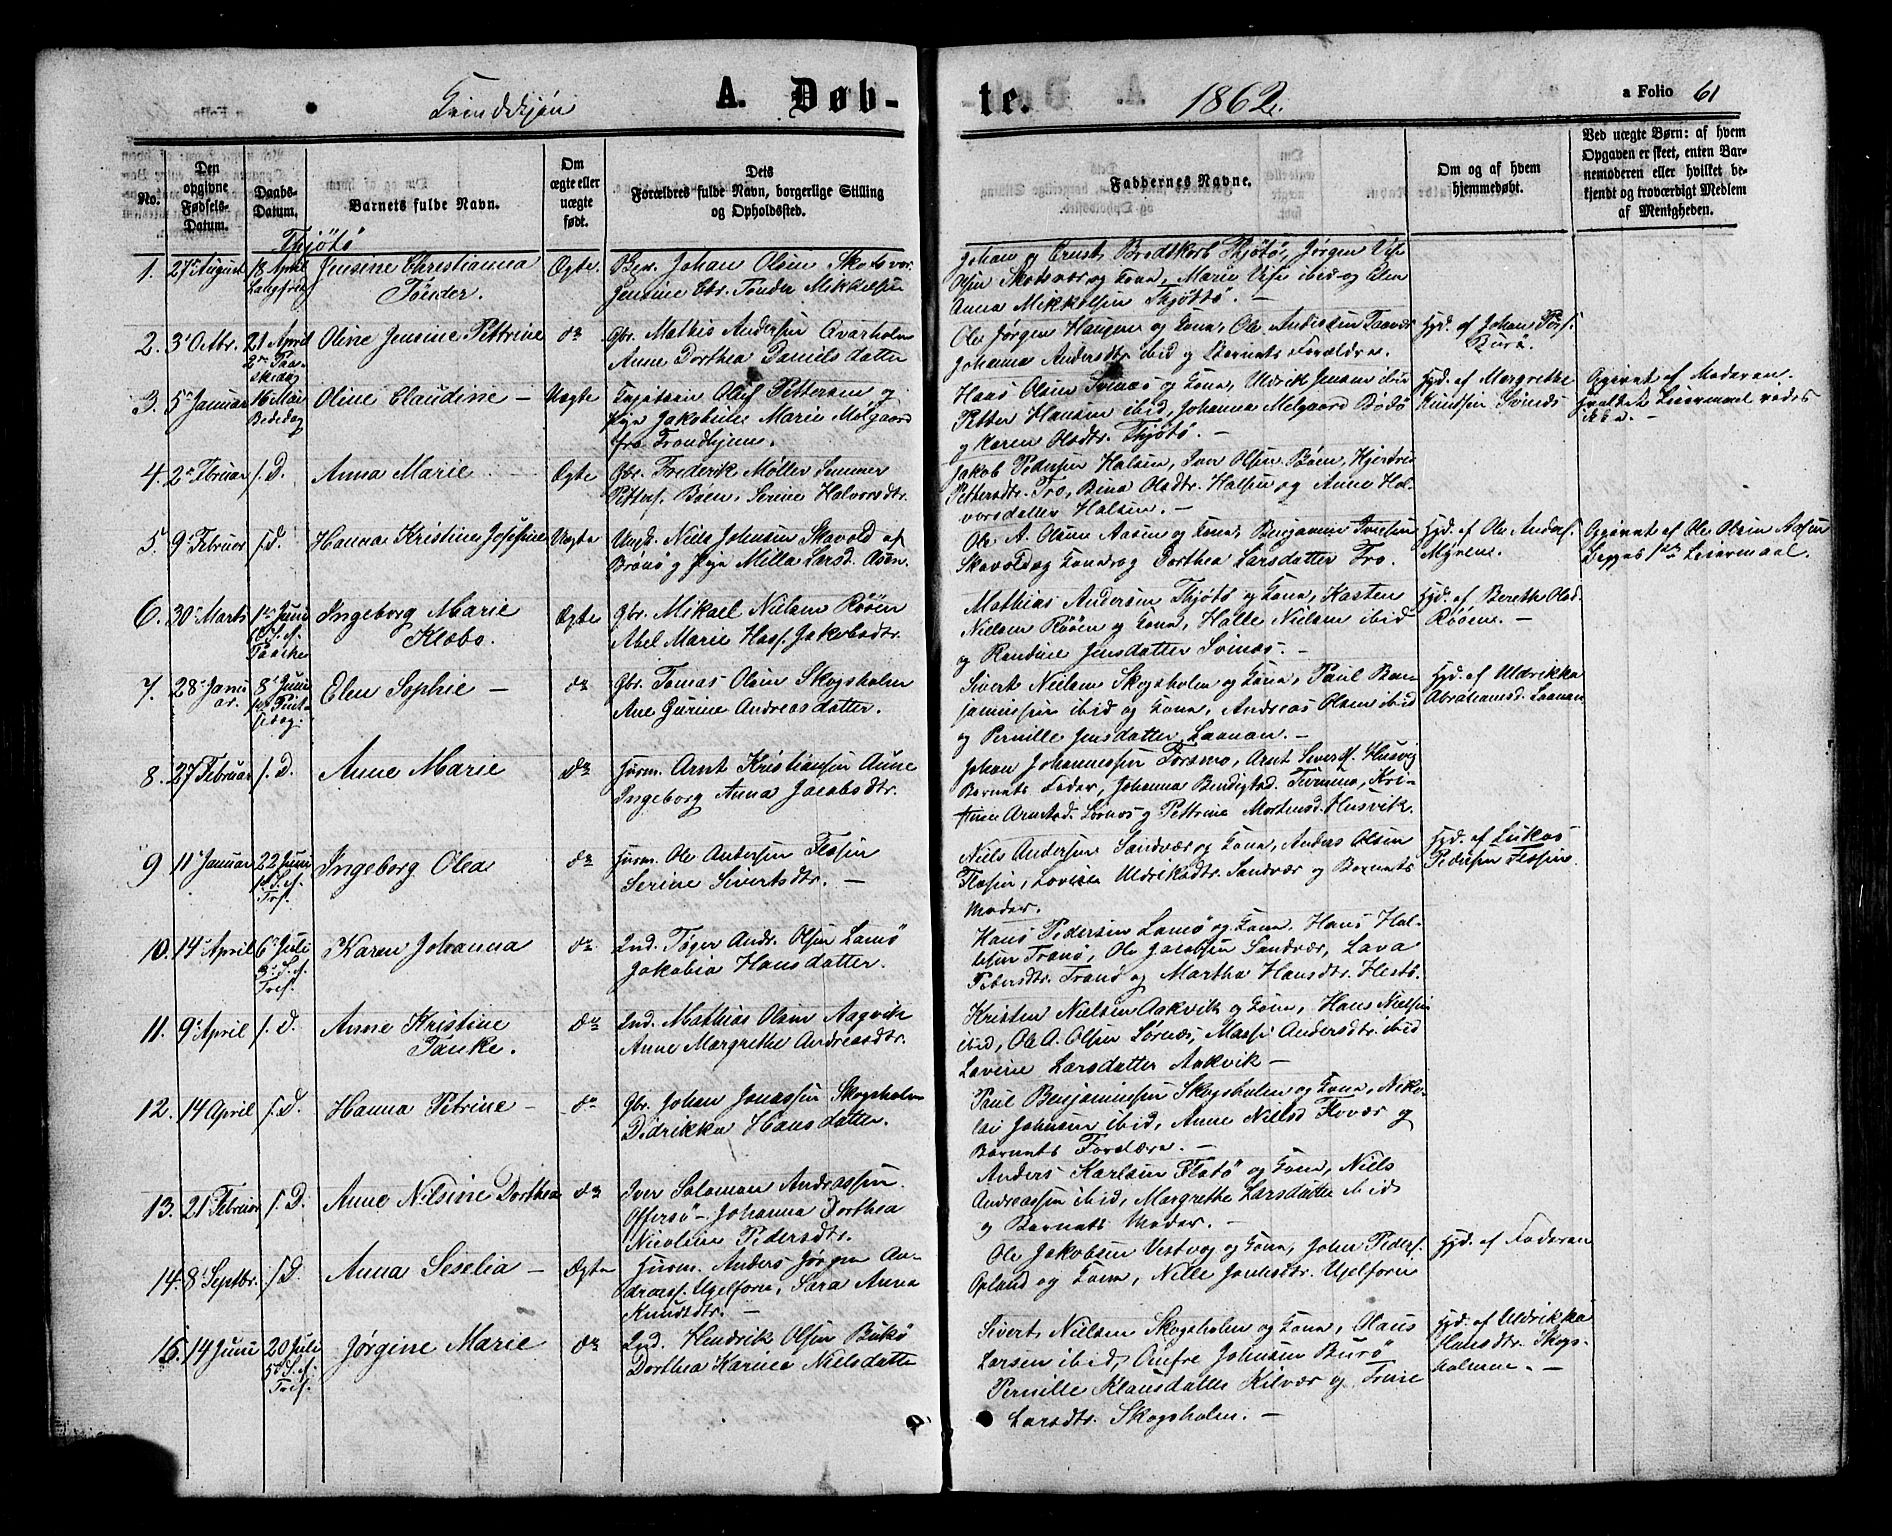 Kvindekjøn A. Døb-
te. 1862. a Folio 61
No.
Den opgivne Fødsels-Datum.
Daabs-Datum.
Barnets fulde Navn.
Om ægte eller uægte født.
Dets Forældres fulde Navn, borgerlige Stilling og Opholdssted.
Faddernes Navne.
Om og af hvem hjemmedøbt.
Ved uægte Børn: af hvem Opgaven er skeet, enten Barnemoderen eller hvilket bekjendt og troværdigt Medlem af Menigheden.
Thjøtø
1. 27 August 18 April Langfred. Jensine Christianna Tønder. Ægte.
Johan Olsen Skotsvær
Jensine Chr. Tønder Mikkelsen
Johan og Ernst Brodtkorb Thjøtø, Jørgen
Olsen Skotsvær og Kona, Marie ibid og Elen
Anna Mikkelsen Thjøttø. —
2. 3 Octbr. 21 April 2den Paaskedag Oline Jensine Pettrine do
Gbr. Mathis Andersen Qvarholm
Anne Dorthea Danielsdatter
Ole Jørgen Hansen og Kona, Ole Andersen
Johanna Andersdtr. ibid og Barnets Forældre.
Hjd. af Johan
Burø.
3. 5 Januar 16 Mai Bededag Oline Claudine — Uægte
Oluf Pettersen og
Pige Jakobine Marie Melgaard
fra Trondhjem.
Hans Olsen Svinæs og Kona, Uldrik Jensen ibid
Petter Hansen ibid, Johanna Melgaard Bodø
og Karen Olsdtr. Thjøtø. —
Hjd. af Margrethe
Knudsen Svinæs
Opgivet af Moderen.
Hvoldet Leiermaal vides
ikke. —
4. 2 Februar s. D. Anna Marie Ægte
Gbr. Frederik Møller Sommer
Petters. Bøen, Serine Halvorsdtr.
Jakob Pedersen Halsen, Iver Olsen Bøen, Hjerdrei
Pettersdtr. Tro, Bina Olsdtr. Halsen og Anne Hal-
vorsdatter Halsen. —
5. 9 Februar s. d. Hanna Kristine Josephine Uægte
Ungk. Niels Johnsen Skavold af
Brønø og Pige Milla Larsd. Aasen
Ole A. Olsen Aasen og Kona, Benjamin Iversen
Skavold og Kona og Dorthea Larsdatter Tro.
Hjd. af Ole Anders.
Myrene.
Opgivet af Ole Olsen Aasen
Begges 1ste Leiermaal.
6. 30 Marts 1ste Juni S. ef. Paaske Ingeborg Marie Klæbo. Ægte
Gbr. Mikael Nielsen Røøen
Abel Marie Jakobsdtr.
Mathias Andersen Thjøtø og Kona, Karsten
Nielsen Røøen og Kona, Halle Nielsen ibid
og Randine Jensdatter Svinæs. —
Hjd. af Berethe Olsd.
Røøene. —
7. 28 Januar. 8 Juni 1ste Pintsedag. Elen Sophie — do
Gbr. Tomas Olsen Skogsholm
Ane Gurine Andreasdatter.
Sivert Nielsen Skogsholm og Kona, Paul Ben-
jaminsen ibid og Kona, Andreas Olsen ibid
og Pernille Jensdatter Laanan. —
Hjd. af Uldrikka
Abrahamsd. Laanan
8. 27 Februar s. D. Anne Marie do
Huusm. Arnt Kristiansen Aune
Ingeborg Anna Jacobsdtr.
Johan Johannessen Forsmo, Arnt Sivers. Husvig
Barnets Fader, Johanna Bendigtsd. Kri-
stine Arntsd. Sørnæs og Pettrine Mortensd. Husvik.
9 11 Januar 22 Juni 1st S. ef. Tref. Ingeborg Olea do
Huusm. Ole Andersen Flosen
Serine Sivertsdtr. —
Niels Andersen Sandvær og Kona, Anders Olsen
Flosen, Lovise Uldriksdtr. Sandvær og Barnets
Moder.
Hjd. af Lukas
Pedersen Flosen.
10. 14 April 6 Juli 3 S. ef. Tref. Karen Johanna do
Ind. Tøger Andr. Olsen Lamø
Jakobia Hansdatter.
Hans Pedersen Lamø og Kona, Hans Hal-
Tranø, Ole Jacobsen Sandvær, Lava
Pedersdtr. Tranø og Martha Hansdtr. Hestø.
11. 9 April s. D. Anne Kristine Tanke. do
Ind. Mathias Olsen Aagvik
Anne Margrethe Andreasdtr.
Kristen Nielsen Aakvik og Kona, Hans Nielsen
ibid, Ole A. Olsen Sørnæs, Massi Andersdtr. ibid
Lavine Larsdatter Aakvik —
12. 14 April s. D. Hanna Petrine — do
Gbr. Johan Jonassen Skogsholm
Didrikka Hansdatter.
Paul Benjaminsen Skogsholm og Kona, Niko-
lai Johnsen ibid, Anne Nielsd Flovær og
Barnets Forældre.
13. 21 Februar s. D. Anne Nilsine Dorthea do
Iver Salomon Andreassen
Offersø — Johanna Dorthea
Nicoline Pedersdtr.
Anders Karlsen Flatø og Kona, Niels
Andreassen ibid, Margrethe Larsdatter ibid
og Barnets Moder. —
14. 8 Septbr. s. D. Anna Seselia — Ægte
Huusm. Anders Jørgen An-
dreass. Ugelforn, Sara Anna
Knudsdtr. —
Ole Jakobsen Vestvog og Kona, John Peders.
Opland og Kona, Nille Jonasdtr. Ugelforn
Hjd. af Faderen
15. 14 Juni 20 Juli 5 S. ef. Tref. Jørgine Marie do
Ind. Hendrik Olsen Bukø
Dorthea Karina Nielsdatter
Sivert Nielsen Skogsholm og Kona, Olaus
Larsen ibid, Johnsen Burø
Pernille Klausdatter Kilvær og Trine
Larsdtr. Skogsholm. —
Hjd. af Uldrikka
Hansdtr. Skogs-
holmen. —